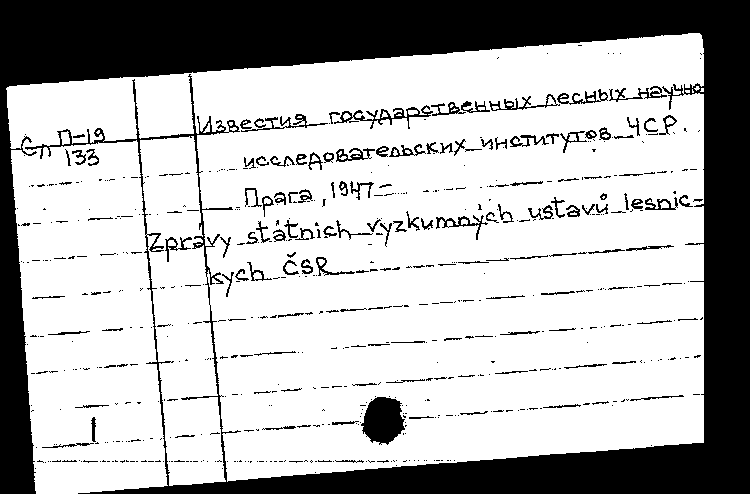 Сл П-19
133
Известия государственных лесных научно
исследовательских институтов ЧСР.
Прага, 1947-
Zprávy státnich vyzkumných ustavů lesnic=
kych ČSR
1